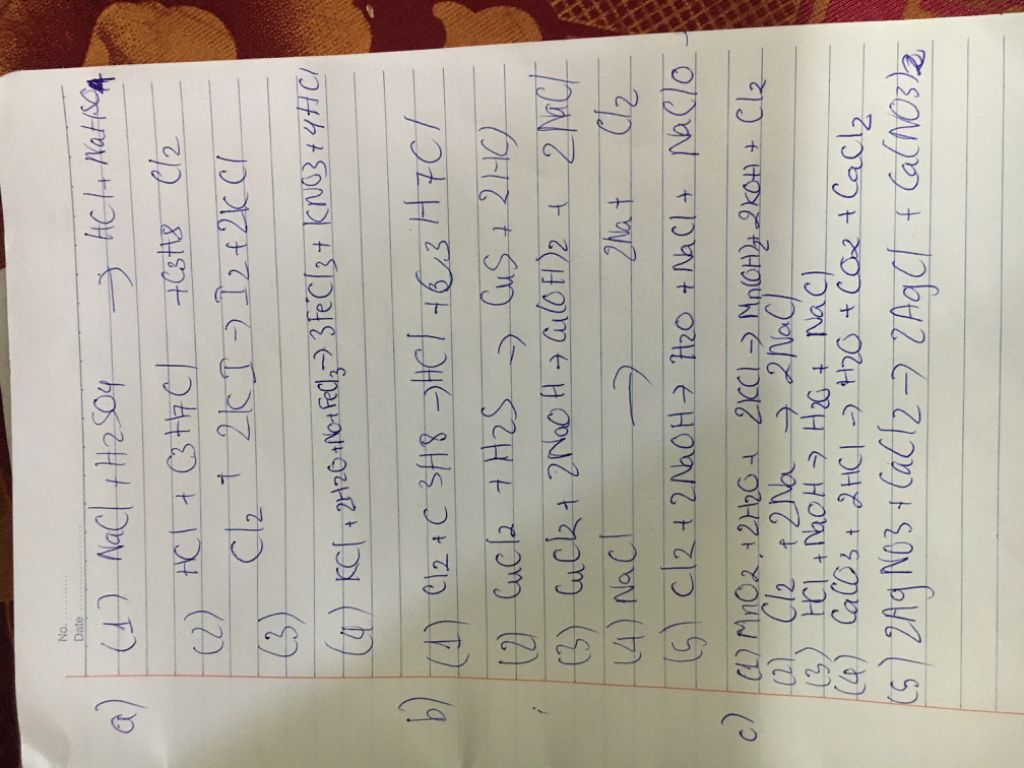 No.
Date
a) (1) NaCl + H2SO4 → HCl + NaHSO4
(2) HCl + C3H7Cl +C3H8 Cl2
(3) Cl2 + 2KI → I2 + 2KCl
(4) KCl + 2H2O + No + FeCl3 → 3FeCl3 + KNO3 + 4HCl
b) (1) Cl2 + C3H8 → HCl + C3H7Cl
(2) CuCl2 + H2S → CuS + 2HCl
(3) CuCl2 + 2NaOH → Cu(OH)2 + 2NaCl
(4) NaCl → 2Na + Cl2
(5) Cl2 + 2NaOH → H2O + NaCl + NaClO
c) (1) MnO2 + 2H2O + 2KCl → Mn(OH)2 + 2KOH + Cl2
(2) Cl2 + 2Na → 2NaCl
(3) HCl + NaOH → H2O + NaCl
(4) CaCO3 + 2HCl → H2O + CO2 + CaCl2
(5) 2AgNO3 + CaCl2 → 2AgCl + Ca(NO3)2